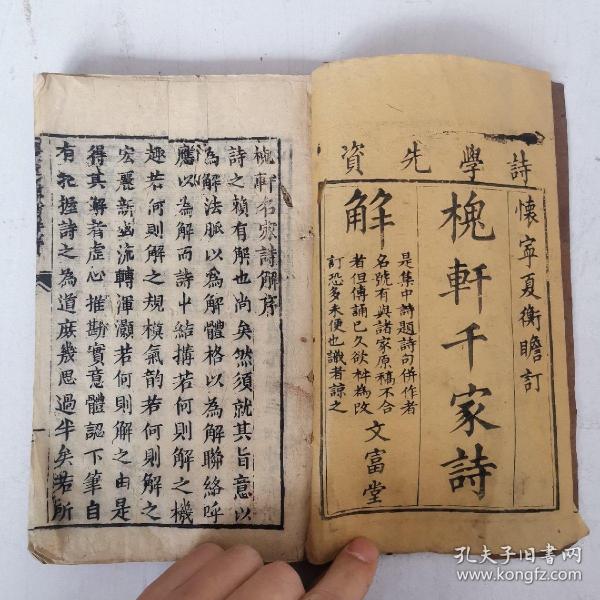 詩學先資
懷寧夏衡瞻訂
槐軒千家詩
解
是集中詩題詩句併作者
名號有與諸家原稿不合
者但傳誦已久欲梓為改
訂恐多未便也識者諒之
文富堂
槐軒名家詩解序
詩之頼有解也尚矣然須就其旨意以
為解法脈以為解體格以為解聯絡呼
應以為解而詩中結搆若何則解之機
趣若何則解之規模氣韵若何則解之
宏麗新逸流轉渾灝若何則解之由是
得其解者虛心推勘實意體認下筆自
有把握詩之為道庶幾思過半矣若所
孔夫子旧书网
www.kongfz.com